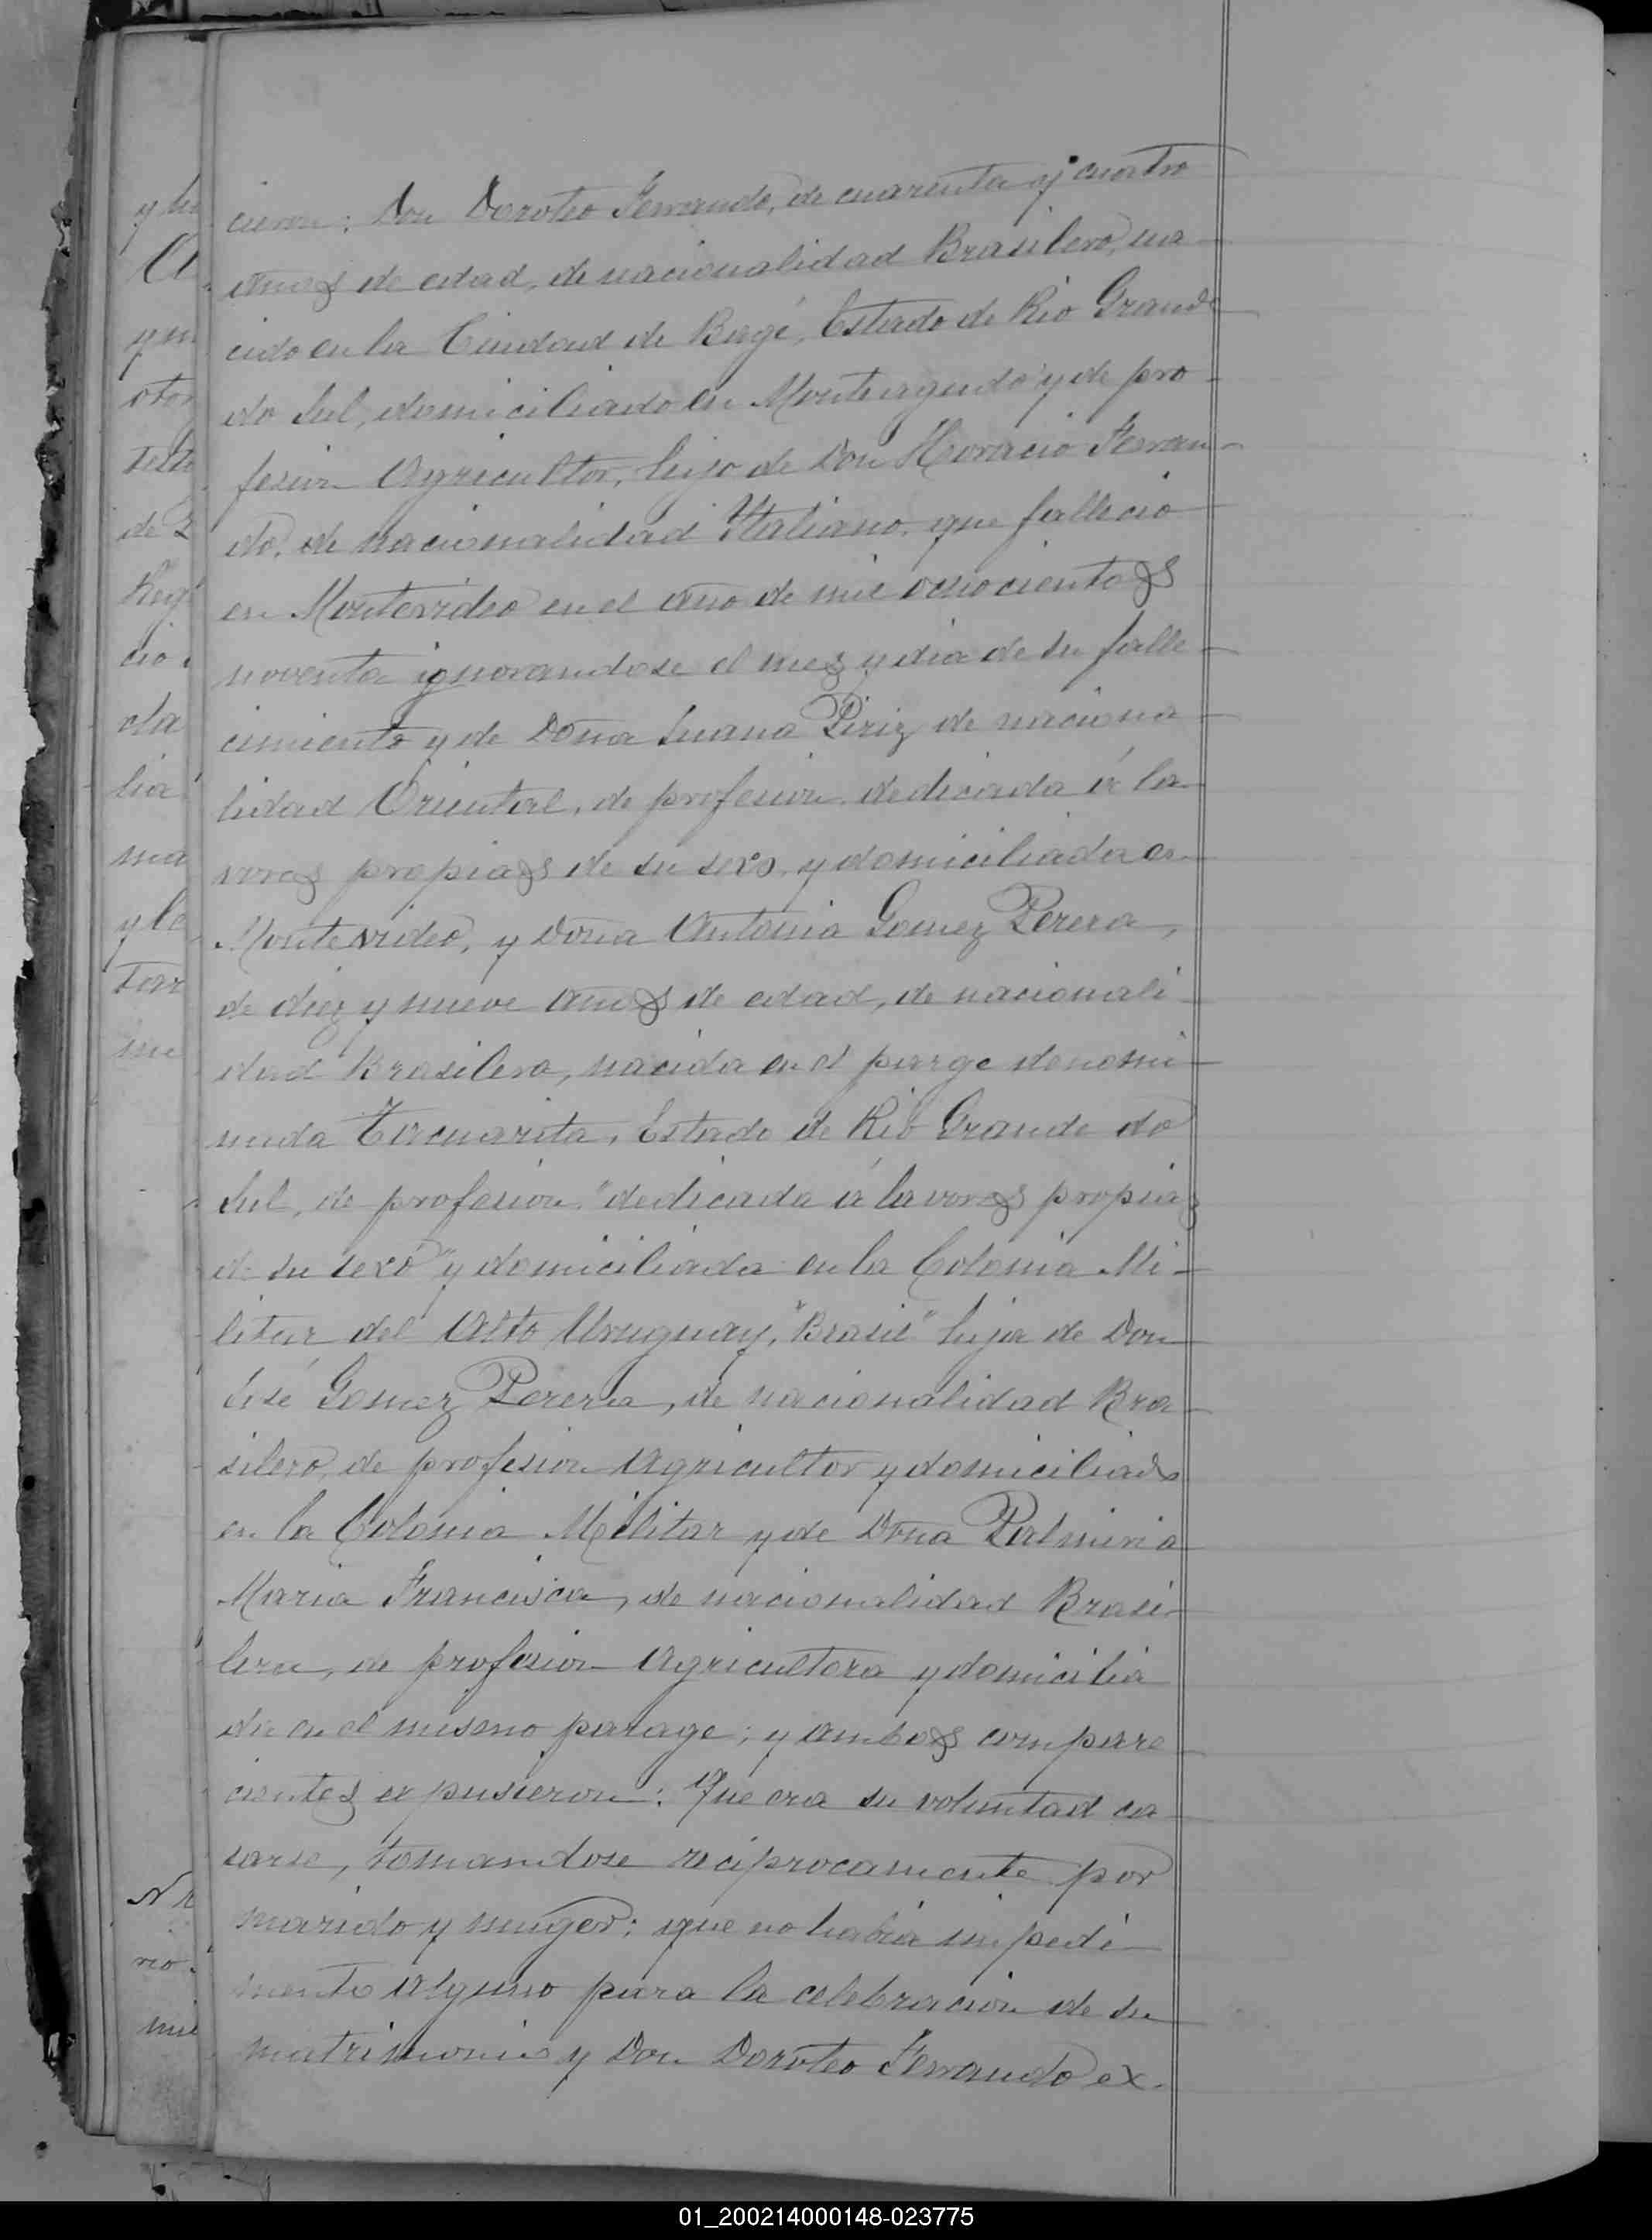 y
A
y m
otor
Testi
de
Reg
cio
cla
lia
ma
y lo
Tar
me
N
rio
mil
cieron: Don Doroteo Ferrando, de cuarenta y cuatro
años de edad, de nacionalidad Brasilero, na
cido en la Ciudad de Bagé, Estado de Rio Grande
do Sul, domiciliado en Monteagudo y de pro-
fesion Agricultor, hijo de Don Horacio Ferran-
do, de nacionalidad Italiano, que fallecio
en Montevideo en el año de mil ochocientos
noventa ignorandose el mes y dia de su falle-
cimiento y de Doña Juana Piriz de naciona-
lidad Oriental, de profesion dedicada á la
vores propias de su sexo, y domiciliada en
Montevideo, y Doña Antonia Gomez Perera,
de diez y nueve años de edad, de nacionali
dad Brasilera, nacida en el parage denomi-
nada Tacuarita, Estado de Rio Grande do
Sul, de profesion "dedicada á lavores propias
de su sexo" y domiciliada en la Colonia Mi-
litar del Alto Uruguay, "Brasil" hija de Don
José Gomez Perera, de nacionalidad Bra-
silero, de profesion Agricultor y domiciliado
en la Colonia Militar y de Doña Palmiria
Maria Francisca, de nacionalidad Brasi-
lera, de profesion Agricultora y domicilia
da en el mismo parage; y ambos compare-
cientes expusieron: Que era su voluntad ca-
sarse, tomandose reciprocamente por
marido y muger: que no habia impedi-
mento alguno para la celebracion de su
matrimonio y Don Doroteo Ferrando ex-
01_200214000148-023775